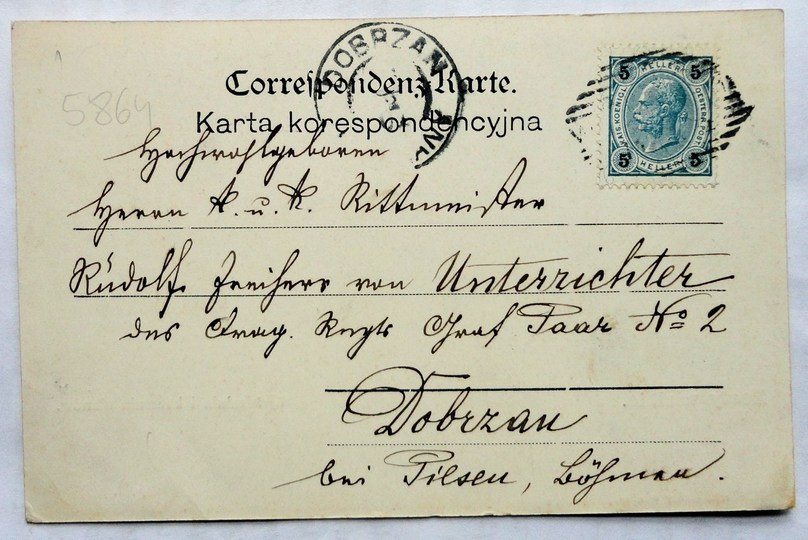 DOBRZAN
5864
Correspondenz-Karte.
Karta korespondencyjna
5 HELLER 5
KAIS. KOENIGL. OESTERR. POST
5 HELLER 5
Hochwohlgeboren
Herrn k. u. k. Rittmeister
Rudolf Freiherr von Unterrichter
des Drag. Regts Graf Paar No 2
Dobrzan
bei Pilsen, Böhmen.